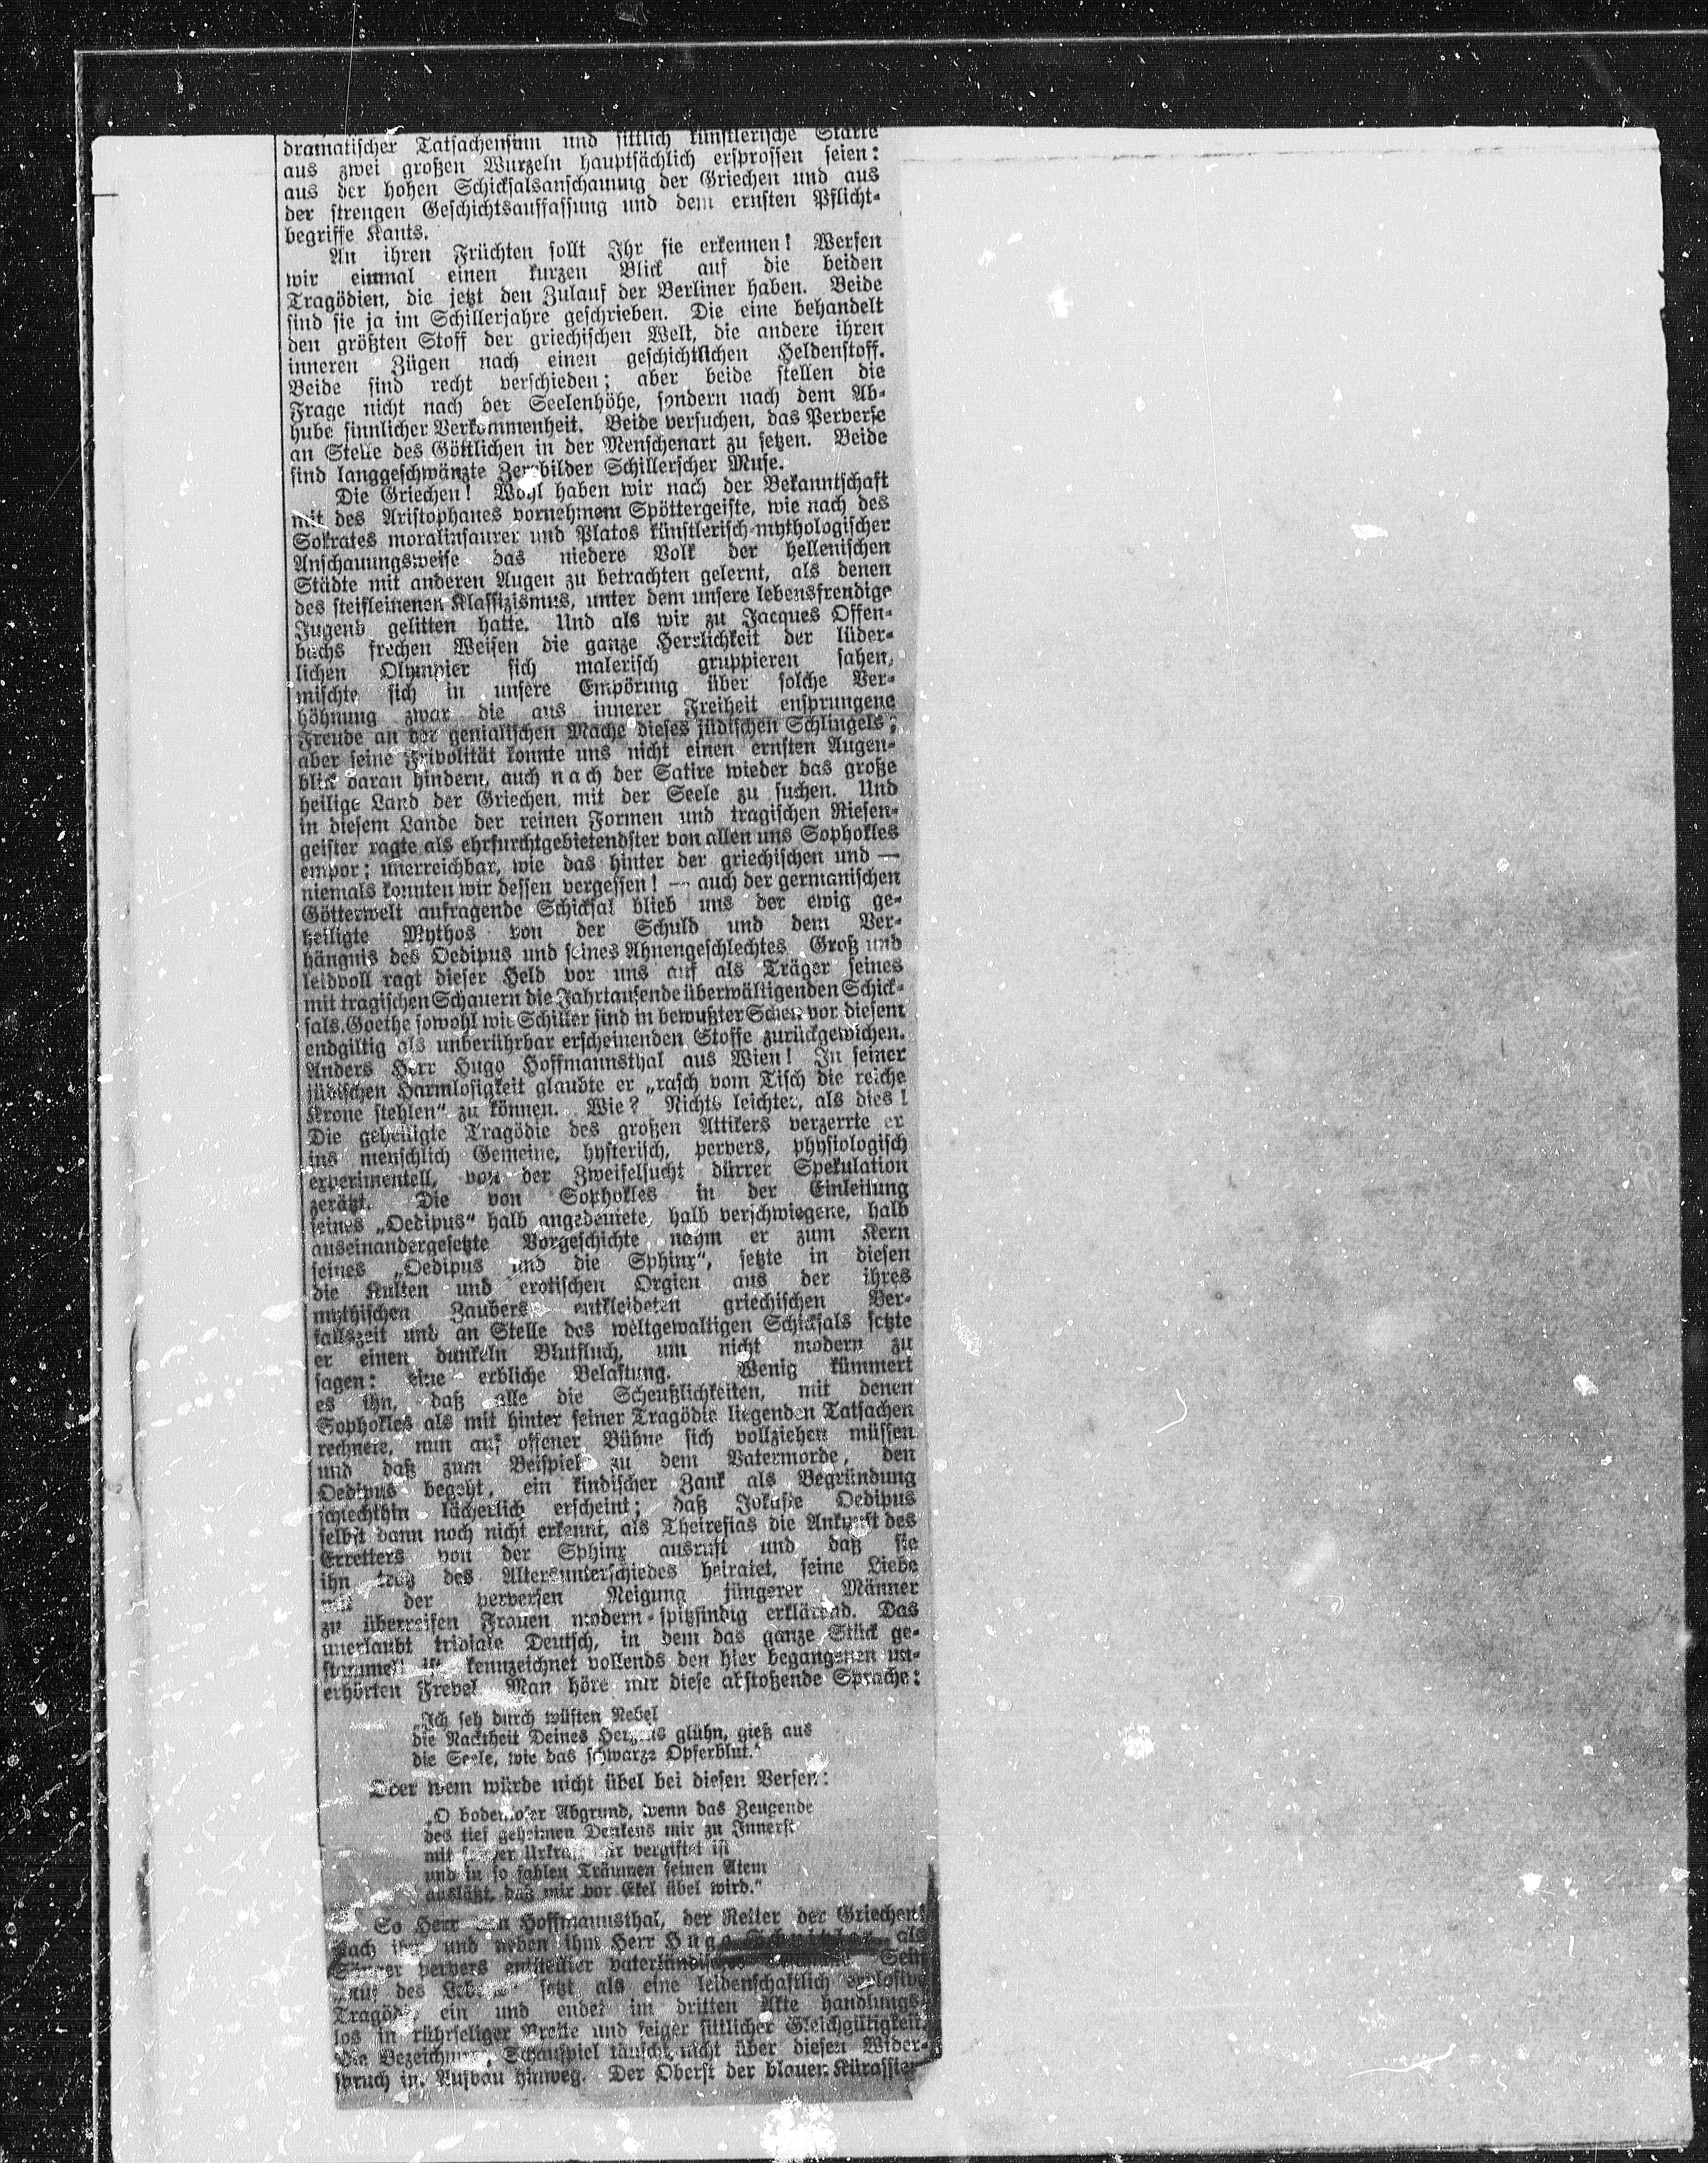 dramatischer Tatsachensinn und sittlich künstlerische Stärke
aus zwei großen Wurzeln hauptsächlich ersprossen seien:
aus der hohen Schicksalsanschauung der Griechen und aus
der strengen Geschichtsauffassung und dem ernsten Pflicht-
begriffe Kants.
An ihren Früchten sollt Ihr sie erkennen! Werfen
wir einmal einen kurzen Blick auf die beiden
Tragödien, die jetzt den Zulauf der Berliner haben. Beide
sind sie ja im Schillerjahre geschrieben. Die eine behandelt
den größten Stoff der griechischen Welt, die andere ihren
inneren Zügen nach einen geschichtlichen Heldenstoff.
Beide sind recht verschieden; aber beide stellen die
Frage nicht nach der Seelenhöhe, sondern nach dem Ab-
hube sinnlicher Verkommenheit. Beide versuchen, das Perverse
an Stelle des Göttlichen in der Menschenart zu setzen. Beide
sind langgeschwänzte Zerrbilder Schillerscher Muse.
Die Griechen! Wohl haben wir nach der Bekanntschaft
mit des Aristophanes vornehmem Spöttergeiste, wie nach des
Sokrates moralinsaurer und Platos künstlerisch-mythologischer
Anschauungsweise das niedere Volk der hellenischen
Städte mit anderen Augen zu betrachten gelernt, als denen
des steifleinenen Klassizismus, unter dem unsere lebensfreudige
Jugend gelitten hatte. Und als wir zu Jacques Offen-
bachs frechen Weisen die ganze Herrlichkeit der lüder-
lichen Olympier sich malerisch gruppieren sahen,
mischte sich in unsere Empörung über solche Ver-
höhnung zwar die aus innerer Freiheit ensprungene
Freude an der genialischen Mache dieses jüdischen Schlingels;
aber seine Frivolität konnte uns nicht einen ernsten Augen-
blick daran hindern, auch nach der Satire wieder das große
heilige Land der Griechen mit der Seele zu suchen. Und
in diesem Lande der reinen Formen und tragischen Riesen-
geister ragte als ehrfurchtgebietendster von allen uns Sophokles
empor; unerreichbar, wie das hinter der griechischen und —
niemals konnten wir dessen vergessen! — auch der germanischen
Götterwelt aufragende Schicksal blieb uns der ewig ge-
heiligte Mythos von der Schuld und dem Ver-
hängnis des Oedipus und seines Ahnengeschlechtes. Groß und
leidvoll ragt dieser Held vor uns auf als Träger seines
mit tragischen Schauern die Jahrtausende überwältigenden Schick-
sals. Goethe sowohl wie Schiller sind in bewußter Scheu vor diesem
endgiltig als unberührbar erscheinenden Stoffe zurückgewichen.
Anders Herr Hugo Hoffmannsthal aus Wien! In seiner
jüdischen Harmlosigkeit glaubte er „rasch vom Tisch die reiche
Krone stehlen“ zu können. Wie? Nichts leichter, als dies!
Die geheiligte Tragödie des großen Attikers verzerrte er
ins menschlich Gemeine, hysterisch, pervers, physiologisch
experimentell, von der Zweifelsucht dürrer Spekulation
zerätzt. Die von Sophokles in der Einleitung
seines „Oedipus“ halb angedeutete, halb verschwiegene, halb
auseinandergesetzte Vorgeschichte nahm er zum Kern
seines „Oedipus und die Sphinx“, setzte in diesen
die Kulten und erotischen Orgien aus der ihres
mythischen Zaubers entkleideten griechischen Ver-
fallszeit und an Stelle des weltgewaltigen Schicksals setzte
er einen dunkeln Blutfluch, um nicht modern zu
sagen: eine erbliche Belastung. Wenig kümmert
es ihn, daß alle die Scheußlichkeiten, mit denen
Sophokles als mit hinter seiner Tragödie liegenden Tatsachen
rechnete, nun auf offener Bühne sich vollziehen müssen
und daß zum Beispiel zu dem Vatermorde, den
Oedipus begeht, ein kindischer Zank als Begründung
schlechthin lächerlich erscheint; daß Jokaste Oedipus
selbst dann noch nicht erkennt, als Theiresias die Ankunft des
Erretters von der Sphinx ausruft und daß sie
ihn trotz des Altersunterschiedes heiratet, seine Liebe
mit der perversen Neigung jüngerer Männer
zu überreifen Frauen modern-spitzfindig erklärend. Das
unerlaubt triviale Deutsch, in dem das ganze Stück ge-
stammelt ist, kennzeichnet vollends den hier begangenen un-
erhörten Frevel. Man höre nur diese abstoßende Sprache:
„Ich seh durch wüsten Nebel
die Nacktheit Deines Herzens glühn, gieß aus
die Seele, wie das schwarze Opferblut.“
Oder wem würde nicht übel bei diesen Versen:
„O bodenloser Abgrund, wenn das Zeugende
des tief geheimen Denkens mir zu Innerst
mit der vergiftet ist
und in so fahlen Träumen seinen Atem
ausläßt, daß mir vor Ekel übel wird.“
So Herr von Hoffmannsthal, der Retter der Griechen!
Nach ihm und neben ihm Herr Hugo als
Sänger pervers entstellter Sein
„Ruf des Lebens“ setzt als eine leidenschaftlich explosive
Tragödie ein und endet im dritten Akte handlungs-
los in rührseliger Breite und feiger sittlicher Gleichgültigkeit.
Die Bezeichnung Schauspiel täuscht nicht über diesen Wider-
spruch im Aufbau hinweg. Der Oberst der blauen Kürassier